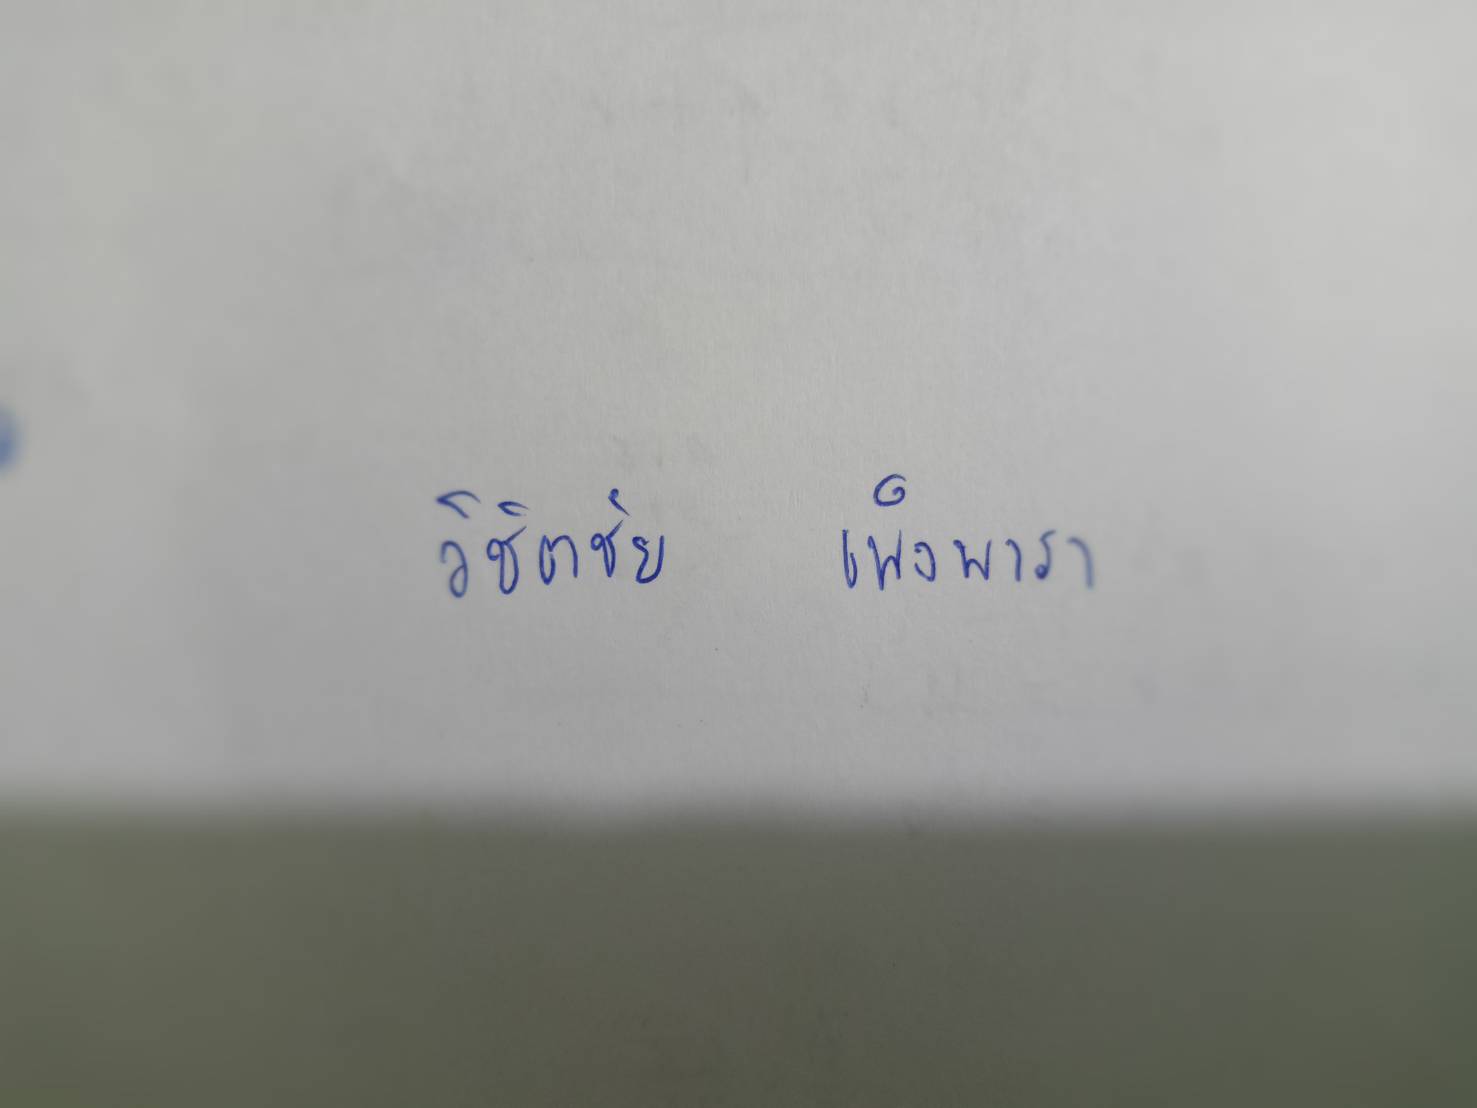 วิชิตชัย เพ็งพารา